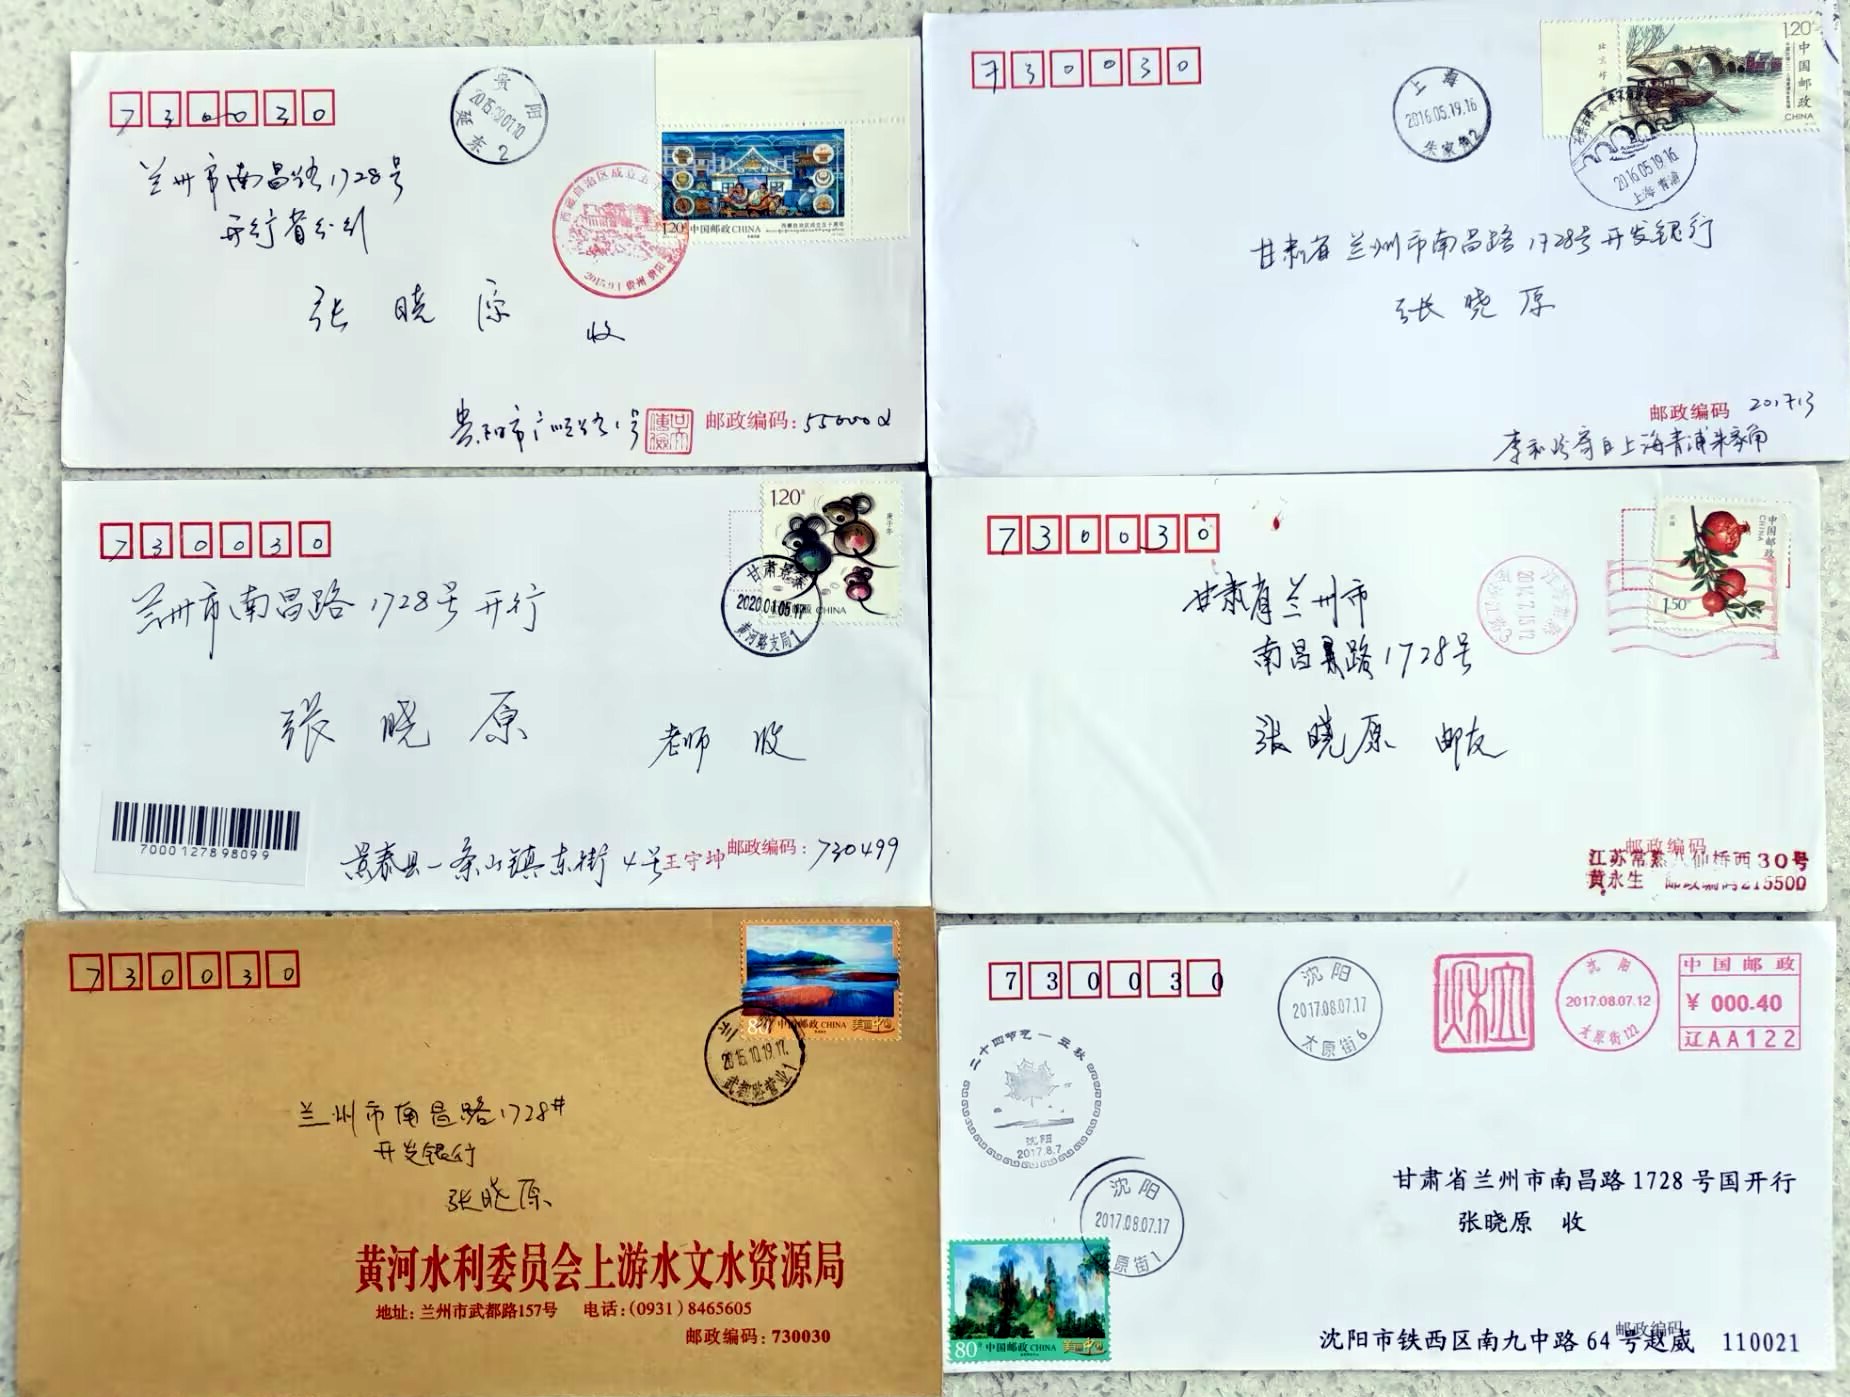 730030
贵阳
2015.09.01.10
延东2
兰州市南昌路1728号
开行省分行
张晓原
收
西藏自治区成立五十
2015.9.1 贵州 贵阳
1.20 中国邮政 CHINA
西藏自治区成立五十周年
贵阳市广顺路1号
邮政编码:550002
730030
上海
2016.05.19.16
朱家角2
1.20
中国邮政
CHINA
2016.05.19.16
上海 青浦
甘肃省兰州市南昌路1728号开发银行
张晓原
邮政编码 201713
李和珍寄自上海青浦朱家角
730030
1.20
庚子年
CHINA
2020.01.05
黄河路支局1
兰州市南昌路1728号开行
张晓原 老师 收
7000127898099
景泰县一条山镇东街4号 王守坤 邮政编码:730499
730030
2014.7.15.12
中国邮政
CHINA
1.50
甘肃省兰州市
南昌路1728号
张晓原 邮友
邮政编码
江苏常熟八仙桥西30号
黄永生 邮政编码215500
730030
80 中国邮政 CHINA 美丽中国
2015.10.19.17
武都路营业1
兰州市南昌路1728#
开发银行
张晓原
黄河水利委员会上游水文水资源局
地址:兰州市武都路157号 电话:(0931)8465605
邮政编码:730030
730030
沈阳
2017.08.07.17
太原街6
沈阳
2017.08.07.12
太原街122
中国邮政
¥ 000.40
辽AA122
二十四节气一立秋
沈阳
2017.8.7
沈阳
2017.08.07.17
原街1
甘肃省兰州市南昌路1728号国开行
张晓原 收
80 中国邮政 CHINA 美丽中国
邮政编码
沈阳市铁西区南九中路64号赵威 110021